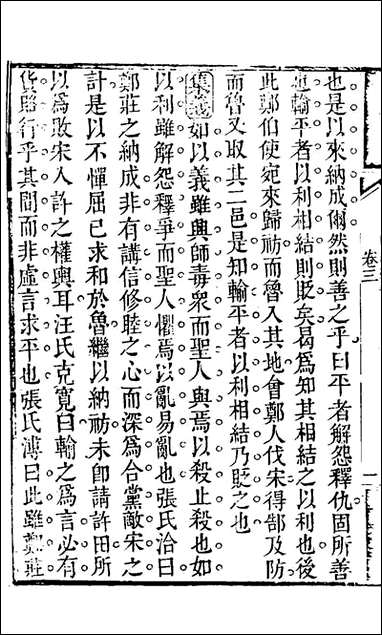 也是以來納成爾然則善之乎曰平者解怨釋仇固所善
也輸平者以利相結則貶矣曷爲知其相結之以利也後
此鄭伯使宛來歸祊而魯入其地會鄭人伐宋得郜及防
而魯又取其二邑是知輸平者以利相結乃貶之也
集義如以義雖興師毒衆而聖人與焉以殺止殺也如
以利雖解怨釋爭而聖人懼焉以亂易亂也張氏洽曰
鄭莊之納成非有講信修睦之心而深爲合黨敵宋之
計是以不憚屈已求和於魯繼以納祊未卽請許田所
以爲敗宋入許之權輿耳汪氏克寬曰輸之爲言必有
貨賂行乎其間而非虛言求平也張氏溥曰此雖鄭莊
卷三